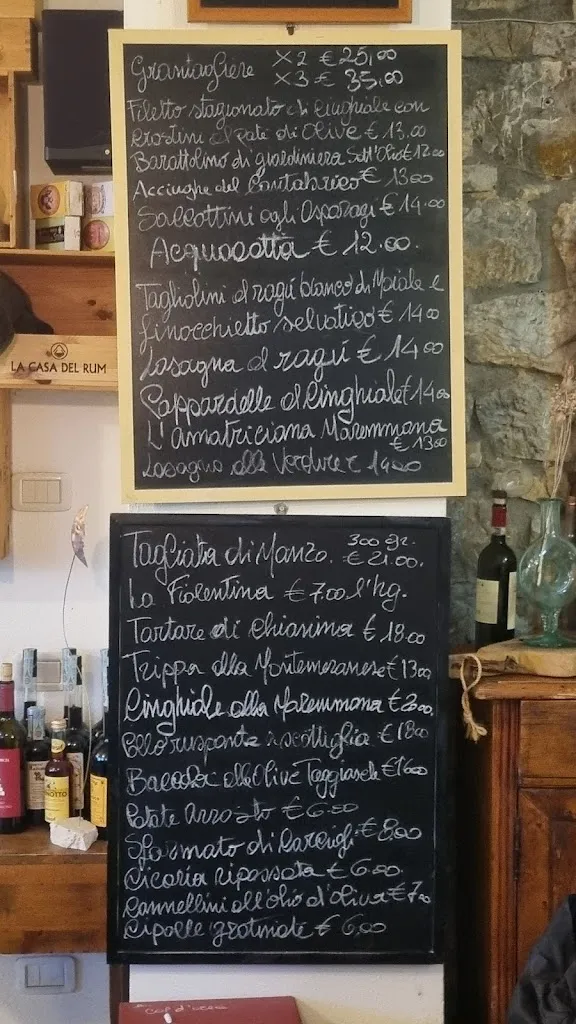 Grantagliere x2 € 25,00
x3 € 35,00
Filetto stagionato di Cinghiale con
Crostini al Patè di Olive € 13.00
Barattolino di giardiniera Sott'Olio € 12.00
Acciughe del Cantabrico € 13.00
Saccottini agli Asparagi € 14.00
Acquacotta € 12.00.
Tagliolini al ragù bianco di Maiale e
finocchietto selvatico € 14.00
Lasagna al ragù € 14.00
Pappardelle al Cinghiale € 14.00
L'Amatriciana Maremmana
€ 13.00
Lasagna alle Verdure € 14.00
LA CASA DEL RUM
Tagliata di Manzo. 300 gr. € 21.00.
La Fiorentina € 7.00 l'hg.
Tartare di Chianina € 18.00
Trippa alla Montemeranese € 13.00
Cinghiale alla Maremmana €
ruspante € 18.00
Baccalà alle Olive Taggiasche € 16.00
Patate Arrosto € 6.50
Sformato di Carciofi € 8.00
Cicoria ripassata € 6.00.
Cannellini all'olio d'oliva € 7.
Cipolle gratinate € 6,00